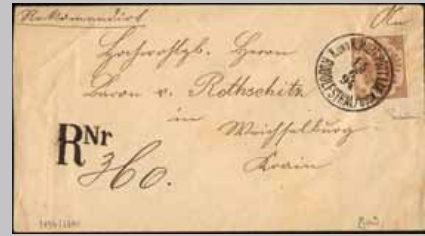 Rekommandirt
An
Hochwohlgb. Herrn
Baron v. Rothschitz
in
Weichselburg
Krain
RNr
360.